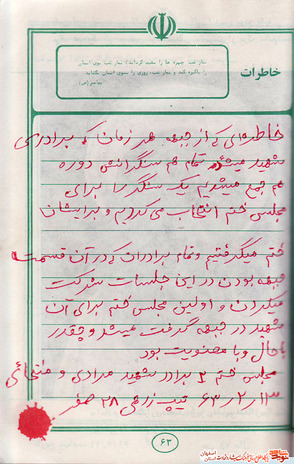 خاطرات
نماز شب، چهره ها را سفید گرداند؛ نماز شب بوی انسان
را پاکیزه کند و نماز شب، روزی را بسوی انسان بکشاند.
خاطره‌ای که از جبهه هر زمان که برادری
شهید میشد تمام هم سنگرانش دوره
هم جمع میشدیم یک سنگر را برای
مجلس ختم انتخاب می‌کردیم و برایشان
ختم میگرفتیم و تمام برادران که در آن قسمت
جبهه بودن در این جلسات شرکت
میکردن و اولین مجلس ختم برای آن
شهید در جبهه گرفته میشد و چقدر
باحال و با معنویت بود
مجلس ختم ۲ برادر شهید مرادی و
۶۳/۲/۱۳ تیپ زرهی ۲۸ صفر
۶۳